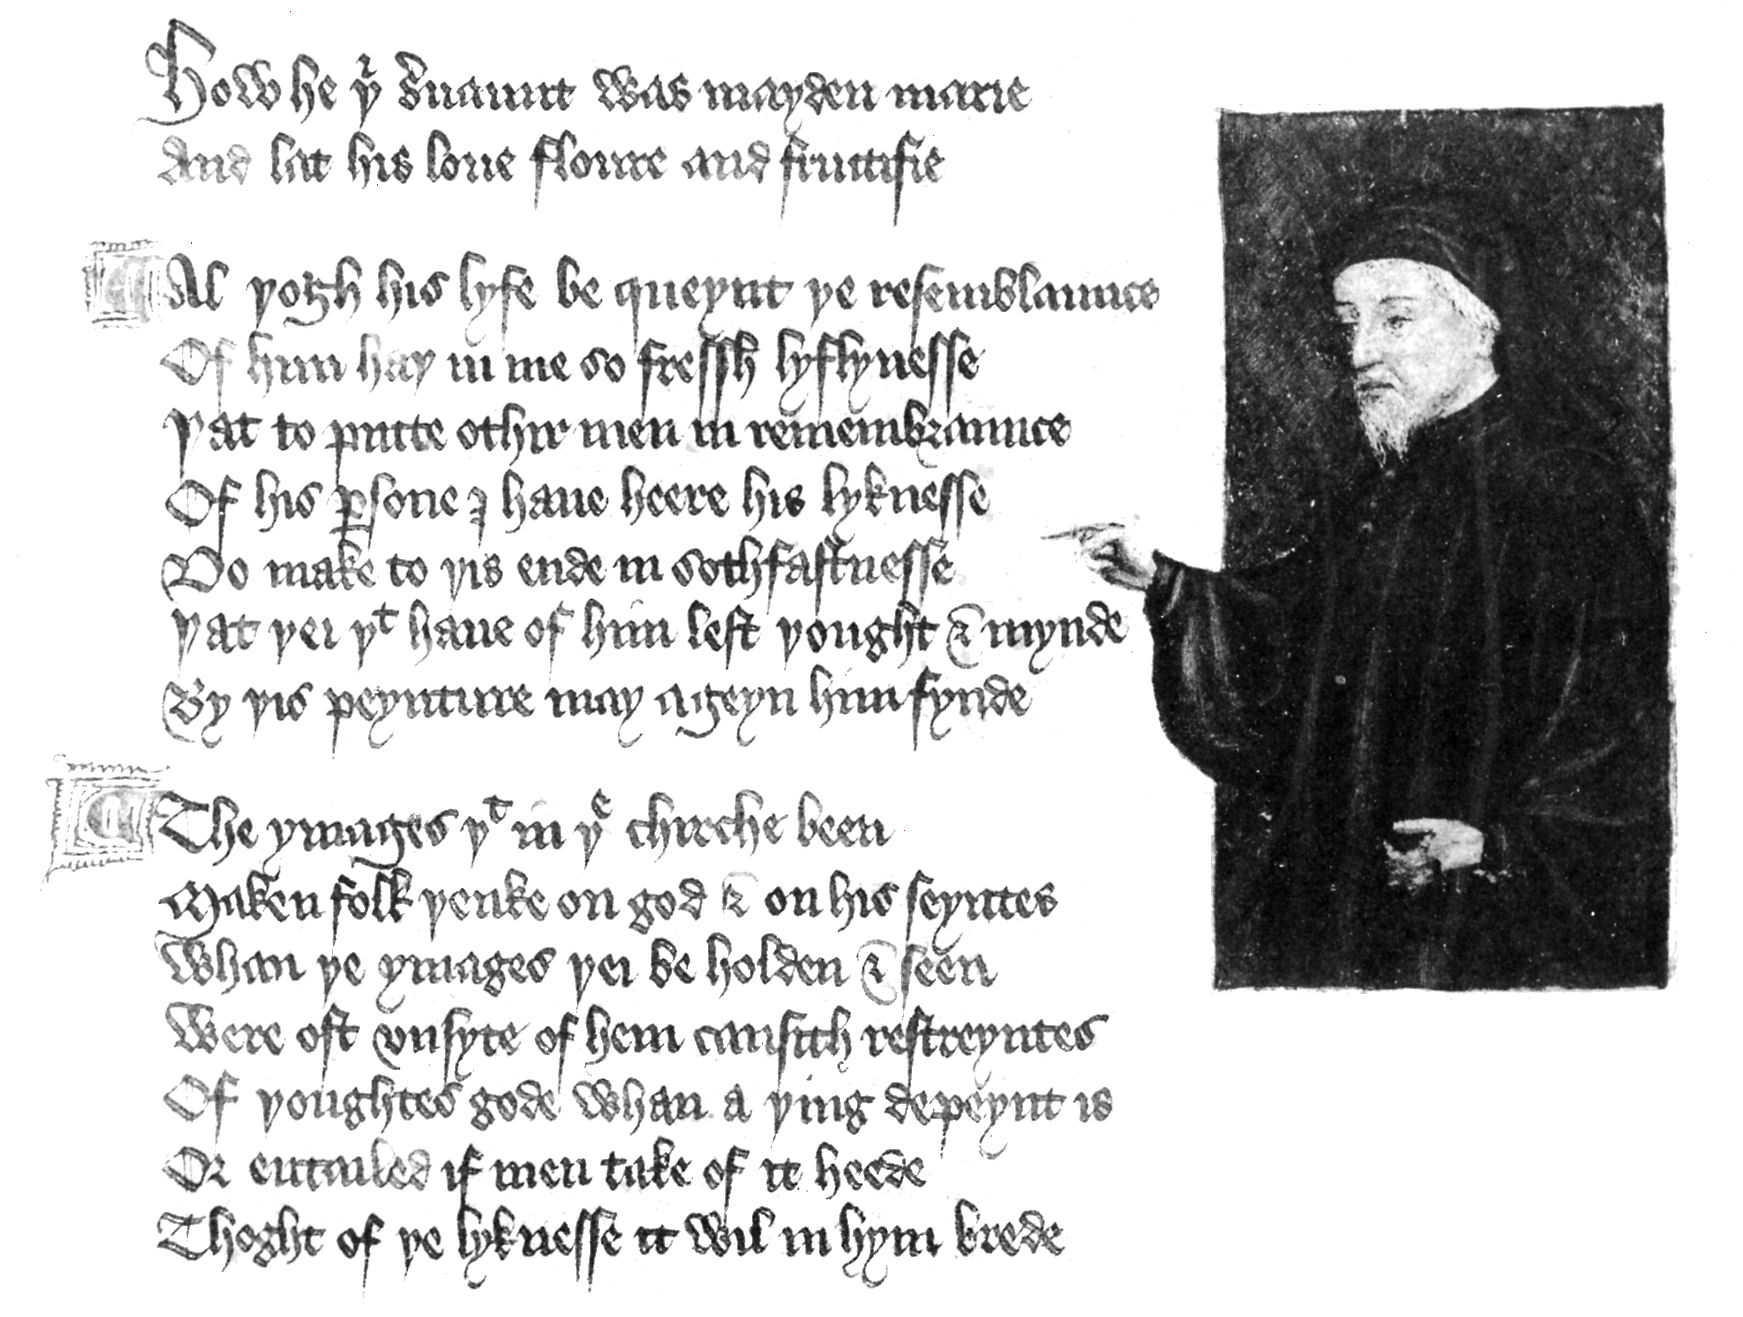 How he þͥ s̉uaunt was mayden marie
And lat his loue floure and fructifie
Al þogh his lyfe be queynt þe resemblaunce
Of him haþ in me so fressh lyflynesse
Þat to putte othir men in remembraunce
Of his ꝑsone I haue heere his lyknesse
Do make to þis ende in sothfastnesse
Þat þei þᵗ haue of him left þought & mynde
By þis peynture may ageyn him fynde
The ymages þᵗ in þᵉ chirche been
Maken folk þenke on god & on his seyntes
Whan þe ymages þei be holden & seen
Were oft vnsyte of hem causith restreyntes
Of þoughtes gode whan a þing depeynt is
Or entailed if men take of it heede
Thoght of þe lyknesse it wil in hym brede